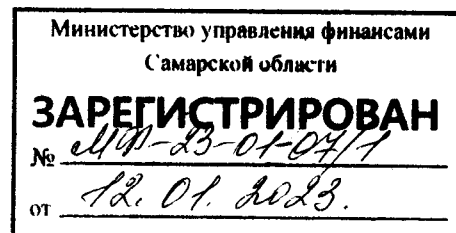 Министерство управления финансами
Самарской области
ЗАРЕГИСТРИРОВАН
№ МФ-23-01-07/1
от 12. 01. 2023.